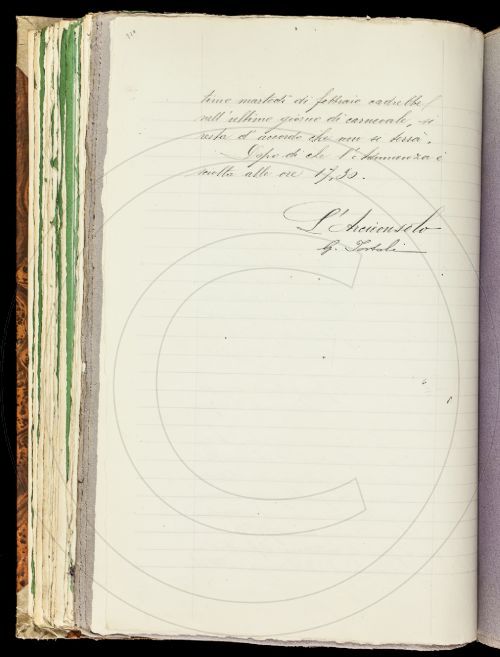 terzo martedì di febbraio cadrebbe
nell'ultimo giorno di carnevale, si
resta d'accordo che non si terrà.
Dopo di che l'Adunanza è
sciolta alle ore 17,30.
L'Arciconsolo
G. Tortoli